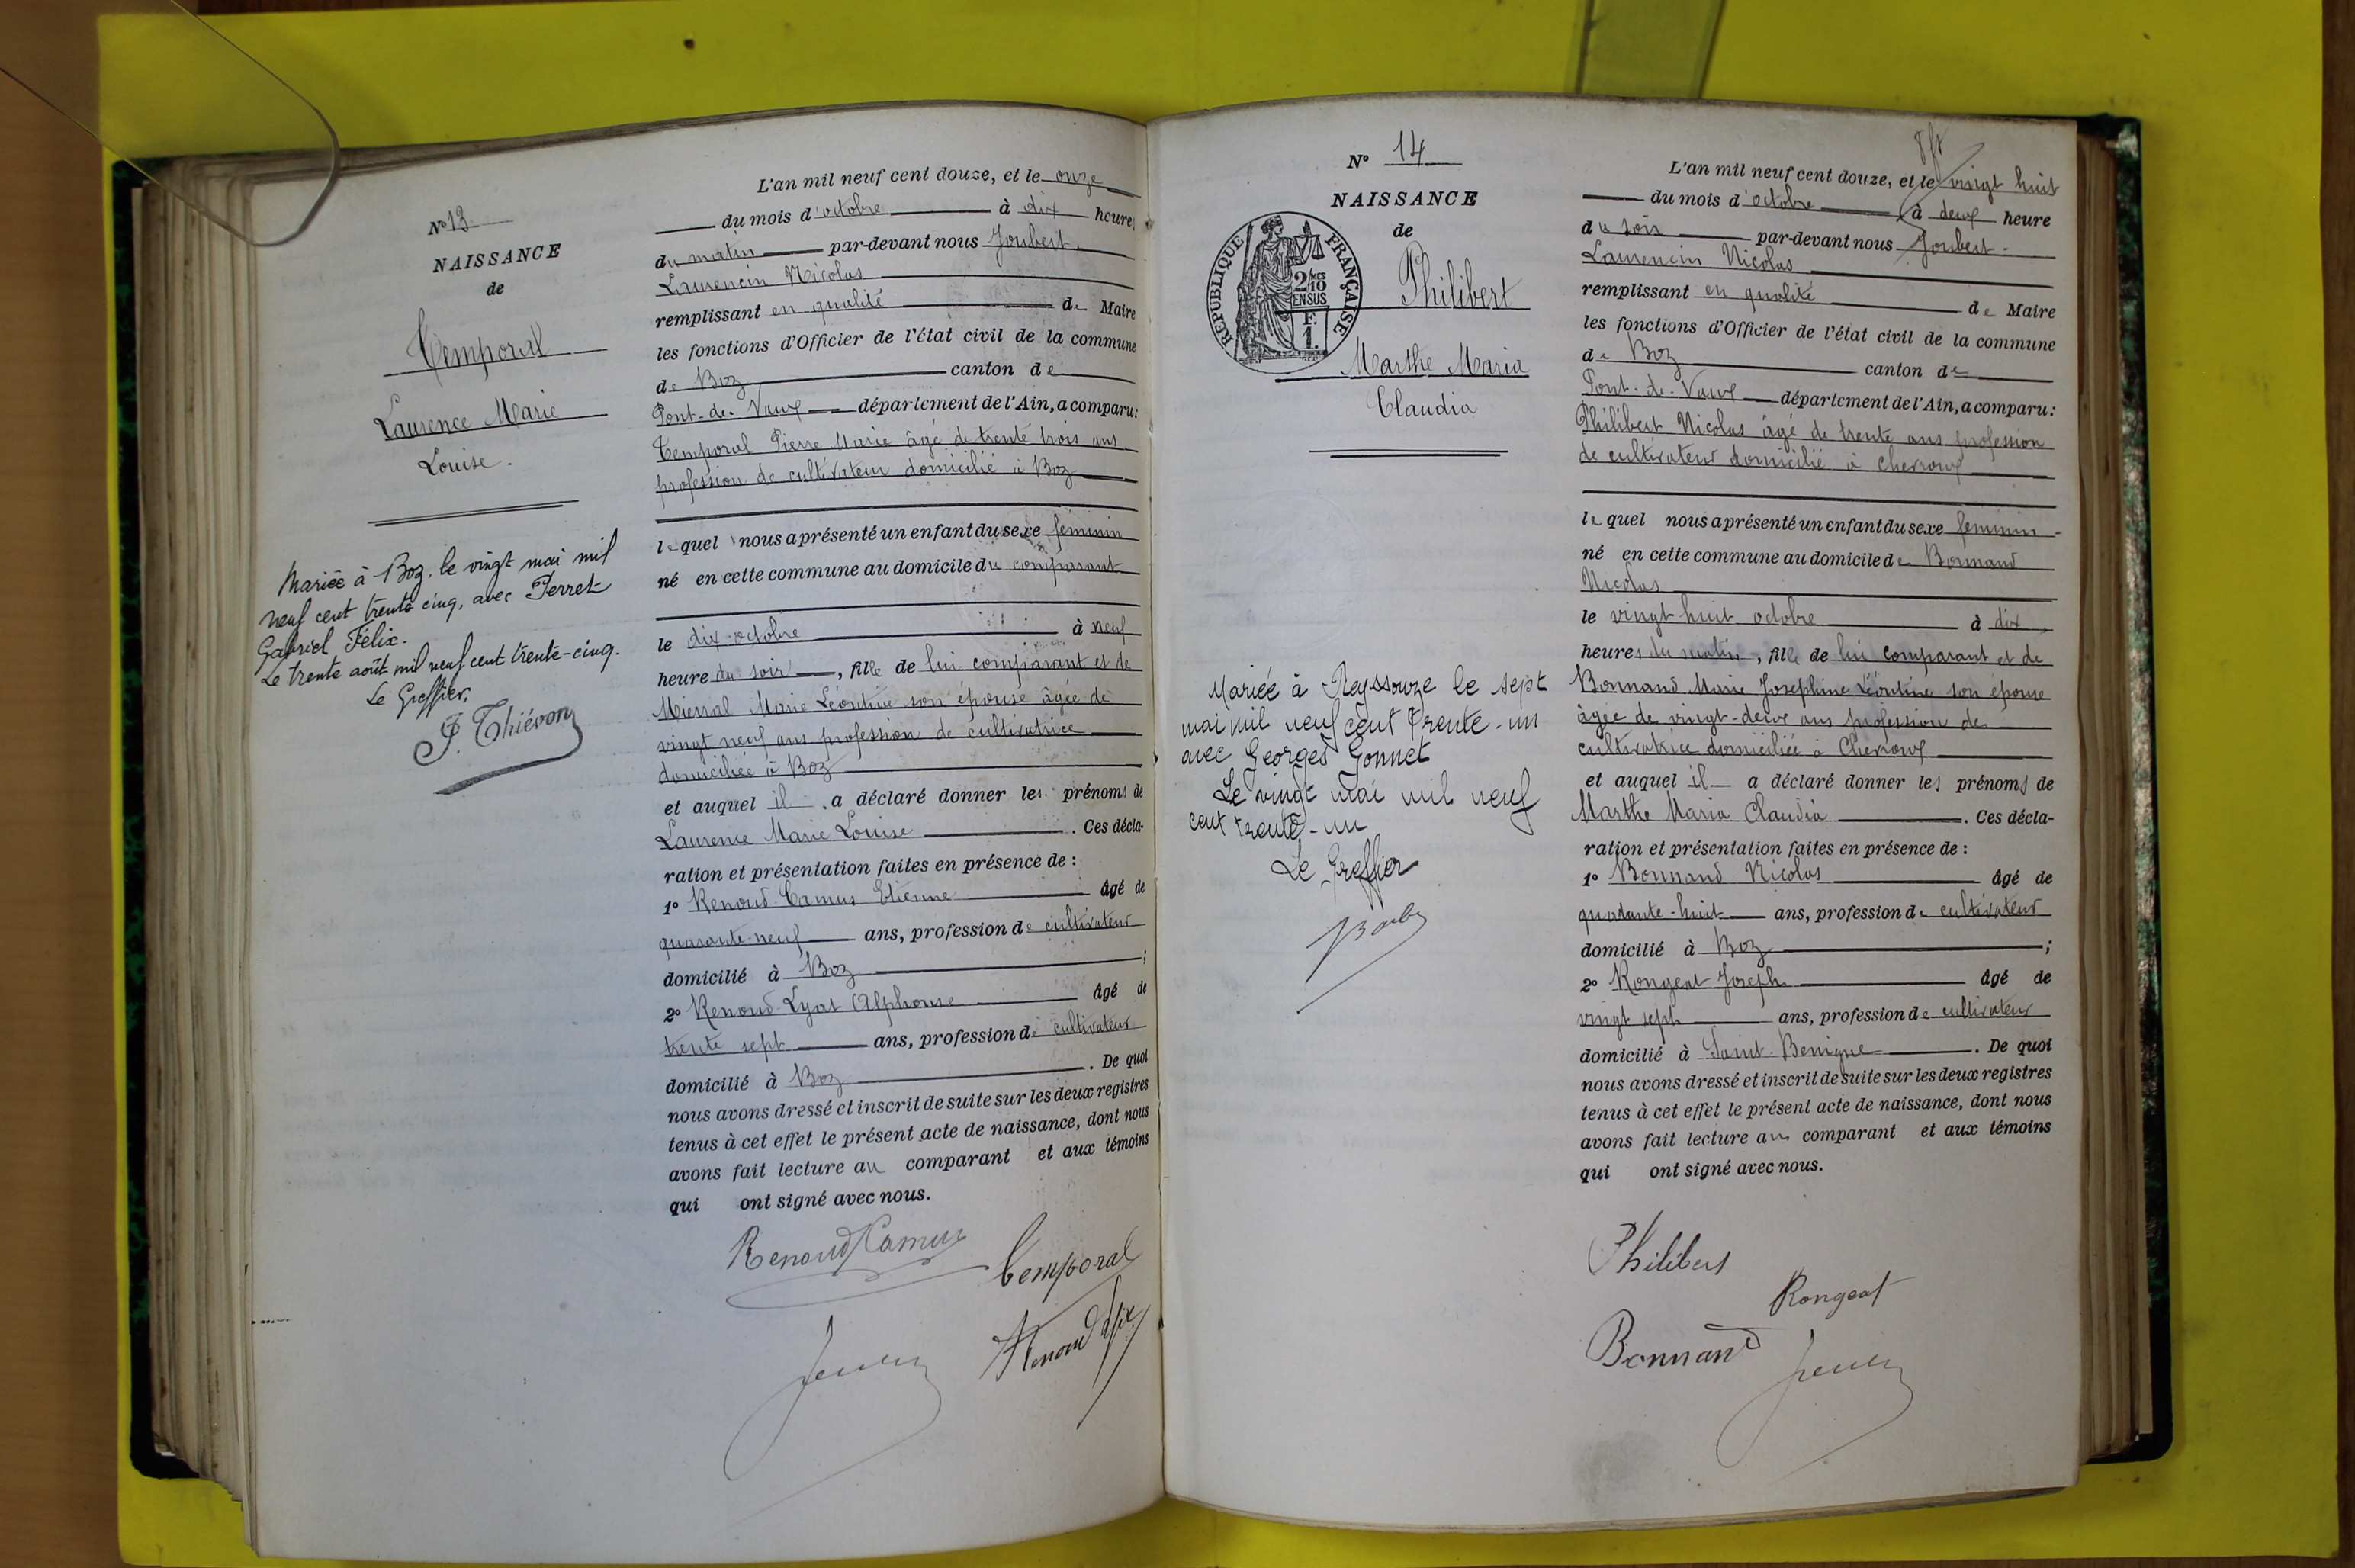 N° 13
NAISSANCE
de
Temporal
Laurence Marie
Louise.
Mariée à Boz, le vingt mai mil
neuf cent trente cinq, avec Perret
Gabriel Félix.
Le trente août mil neuf cent trente-cinq.
Le Greffier,
P. Thiévon
L'an mil neuf cent douze, et le onze
du mois d'octobre à dix heures
du matin par-devant nous Joubert
Laurencin Nicolas
remplissant en qualité de Maire
les fonctions d'Officier de l'état civil de la commune
de Boz canton de
Pont-de-Vaux département de l'Ain, a comparu:
Temporal Pierre Marie âgé de trente trois ans
profession de cultivateur domicilié à Boz
lequel nous a présenté un enfant du sexe féminin
né en cette commune au domicile du comparant
le dix octobre à neuf
heure du soir, fille de lui comparant et de
Marie Léontine son épouse âgée de
vingt neuf ans profession de cultivatrice
domiciliée à Boz
et auquel il a déclaré donner les prénoms de
Laurence Marie Louise. Ces décla-
ration et présentation faites en présence de :
1° Renoud Camus Etienne âgé de
quarante-neuf ans, profession de cultivateur
domicilié à Boz ;
2° Renoud-Lyat Alphonse âgé de
trente sept ans, profession de cultivateur
domicilié à Boz. De quoi
nous avons dressé et inscrit de suite sur les deux registres
tenus à cet effet le présent acte de naissance, dont nous
avons fait lecture au comparant et aux témoins
qui ont signé avec nous.
Renoud Camus
Temporal
Renoud
N° 14
NAISSANCE
de
RÉPUBLIQUE FRANÇAISE
2/10
EN SUS
F.
1.
Philibert
Marthe Maria
Claudia
Mariée à Reyssouze le sept
mai mil neuf cent trente-un
avec Georges Gonnet
Le vingt mai mil neuf
cent trente-un
Le Greffier
L'an mil neuf cent douze, et le vingt huit
du mois d'octobre à deux heure
du soir par-devant nous Joubert
Laurencin Nicolas
remplissant en qualité de Maire
les fonctions d'Officier de l'état civil de la commune
de Boz canton de
Pont-de-Vaux département de l'Ain, a comparu:
Philibert Nicolas âgé de trente ans profession
de cultivateur domicilié à Chevroux
lequel nous a présenté un enfant du sexe féminin
né en cette commune au domicile de Bonnand
Nicolas
le vingt huit octobre à dix
heures du matin, fille de lui comparant et de
Bonnand Marie Josephine Léontine son épouse
âgée de vingt-deux ans profession de
cultivatrice domiciliée à Chevroux
et auquel il a déclaré donner les prénoms de
Marthe Maria Claudia. Ces décla-
ration et présentation faites en présence de :
1° Bonnand Nicolas âgé de
quarante-huit ans, profession de cultivateur
domicilié à Boz ;
2° Rongeat Joseph âgé de
vingt sept ans, profession de cultivateur
domicilié à Saint-Benigne. De quoi
nous avons dressé et inscrit de suite sur les deux registres
tenus à cet effet le présent acte de naissance, dont nous
avons fait lecture au comparant et aux témoins
qui ont signé avec nous.
Philibert
Rongeat
Bonnand